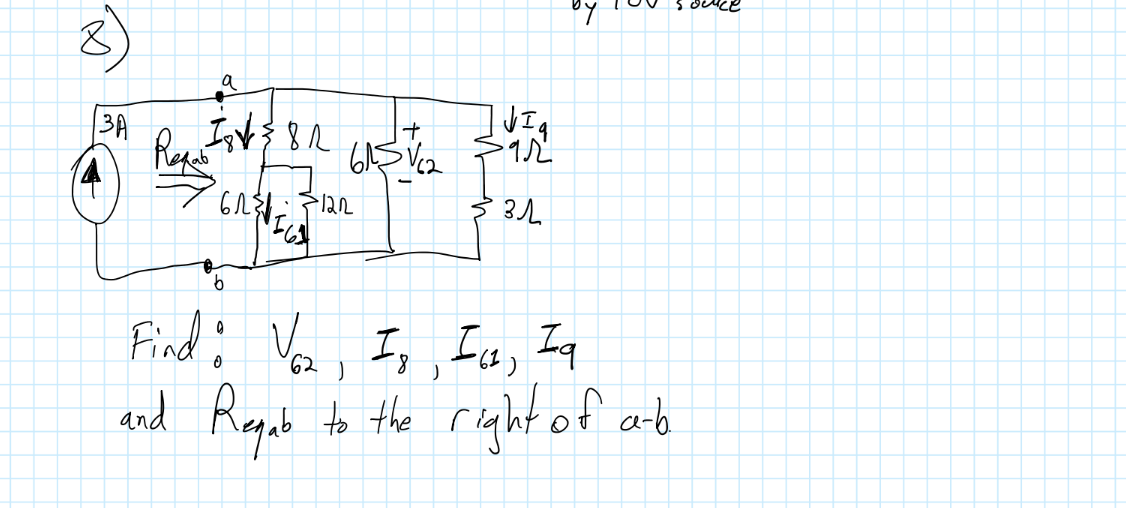 by 10V source
8)
a
3A
I8↓
8Ω
Reqab
6Ω
+
V62
-
↓I9
9Ω
6Ω
↓I61
12Ω
3Ω
b
Find: V62, I8, I61, I9
and Reqab to the right of a-b.